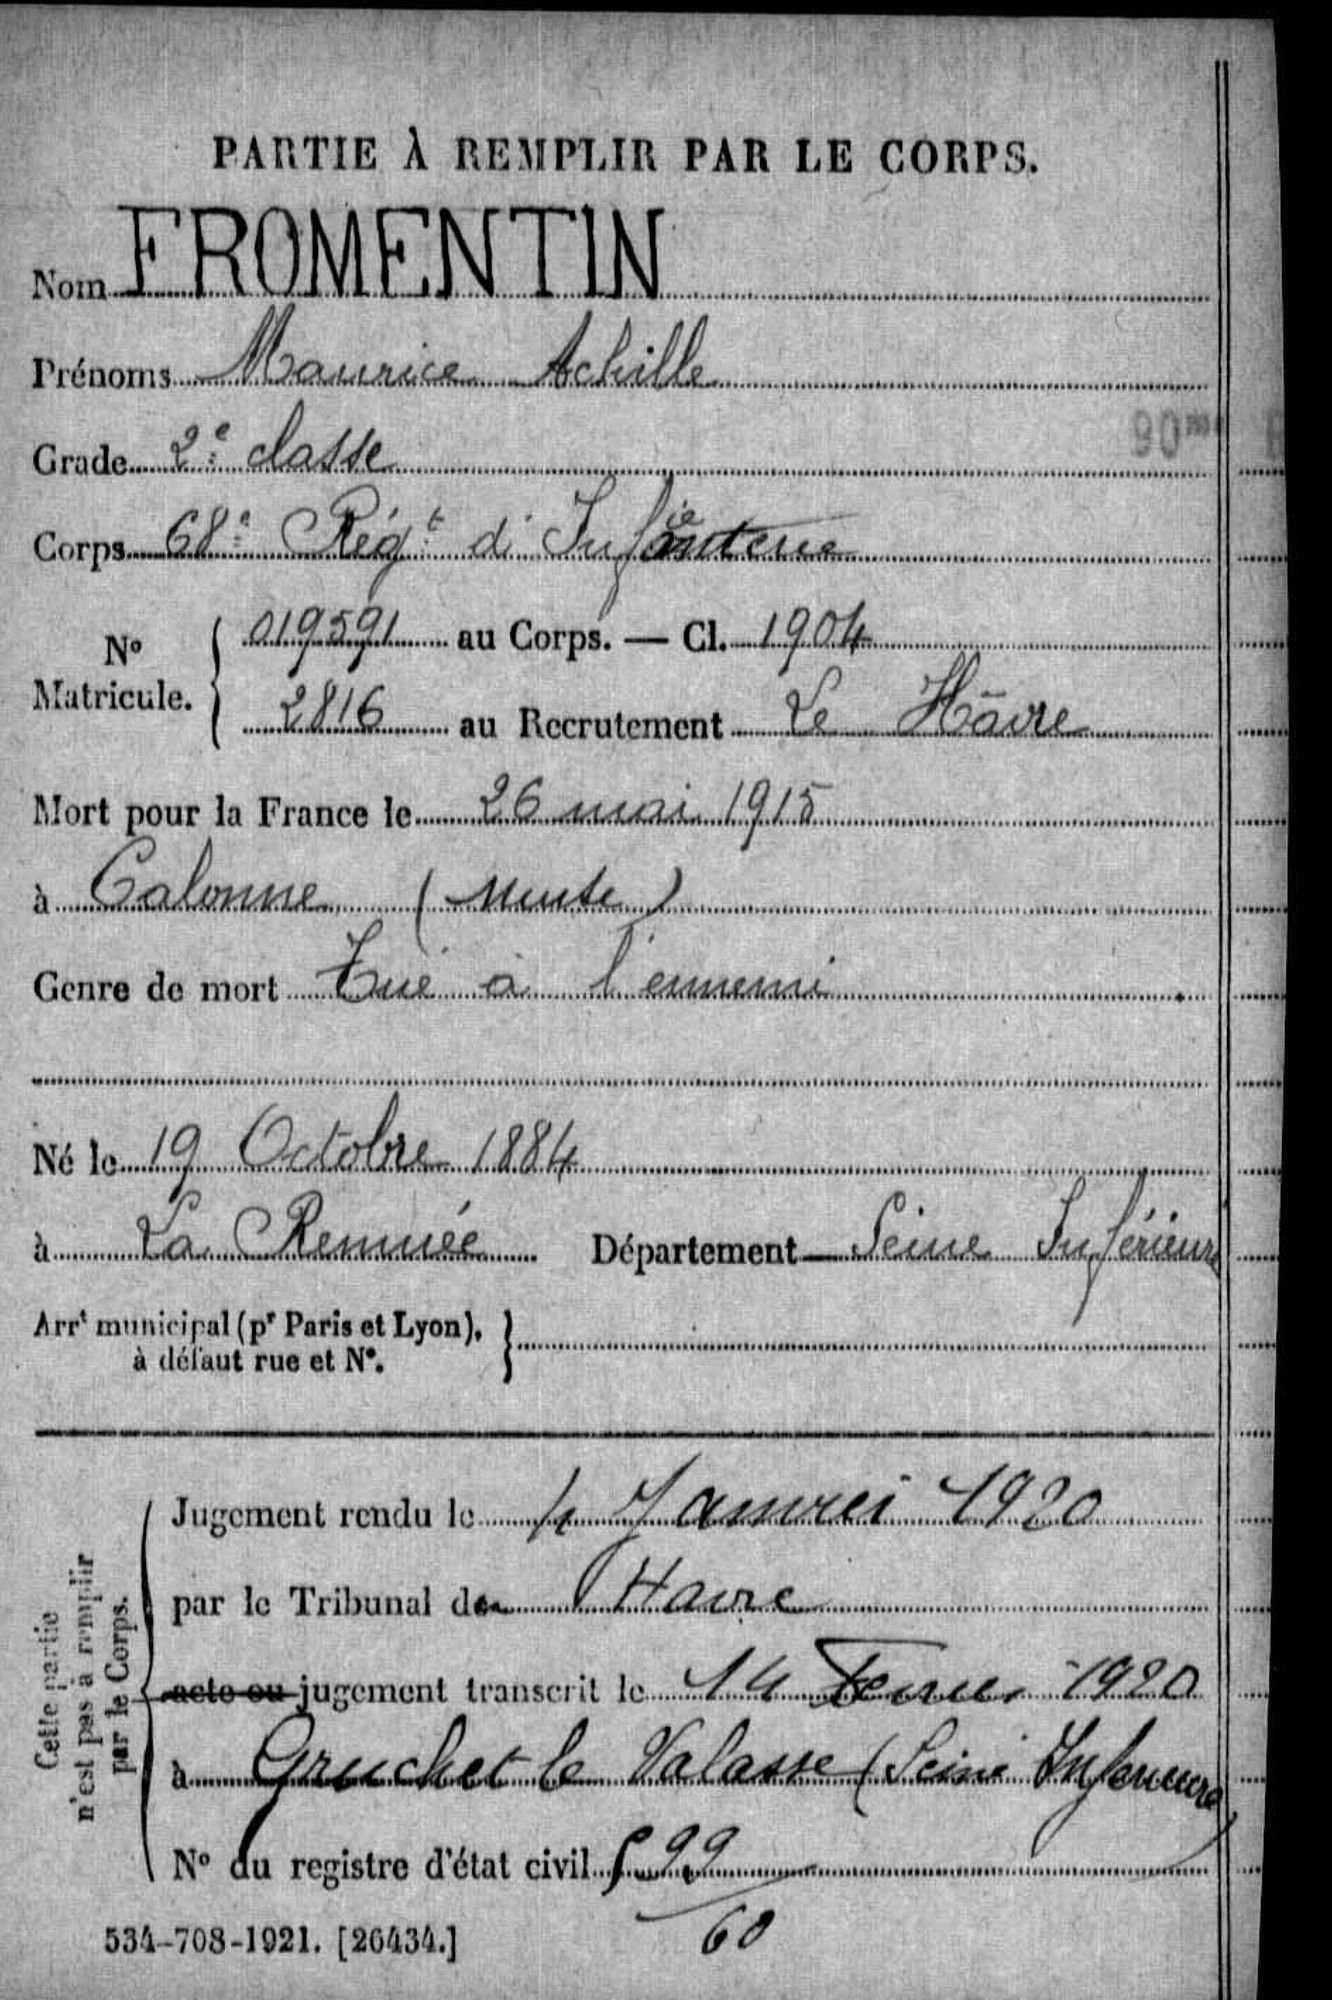 PARTIE À REMPLIR PAR LE CORPS.
Nom FROMENTIN
Prénoms Maurice Achille
Grade 2e classe
Corps 68e Régt d'Infanterie
No Matricule. 019591 au Corps. — Cl. 1904
2816 au Recrutement Le Hâvre
Mort pour la France le 26 mai 1915
à Calonne (Meuse)
Genre de mort Tué à l'ennemi
Né le 19 Octobre 1884
à La Remuée Département Seine Inférieure
Arrt municipal (pr Paris et Lyon),
à défaut rue et No.
Cette partie
n'est pas à remplir
par le Corps.
Jugement rendu le 4 Janvier 1920
par le Tribunal du Havre
acte ou jugement transcrit le 14 Fevrier 1920
à Gruchet le Valasse (Seine Inferieure)
No du registre d'état civil 99
60
534-708-1921. [26434.]
90me